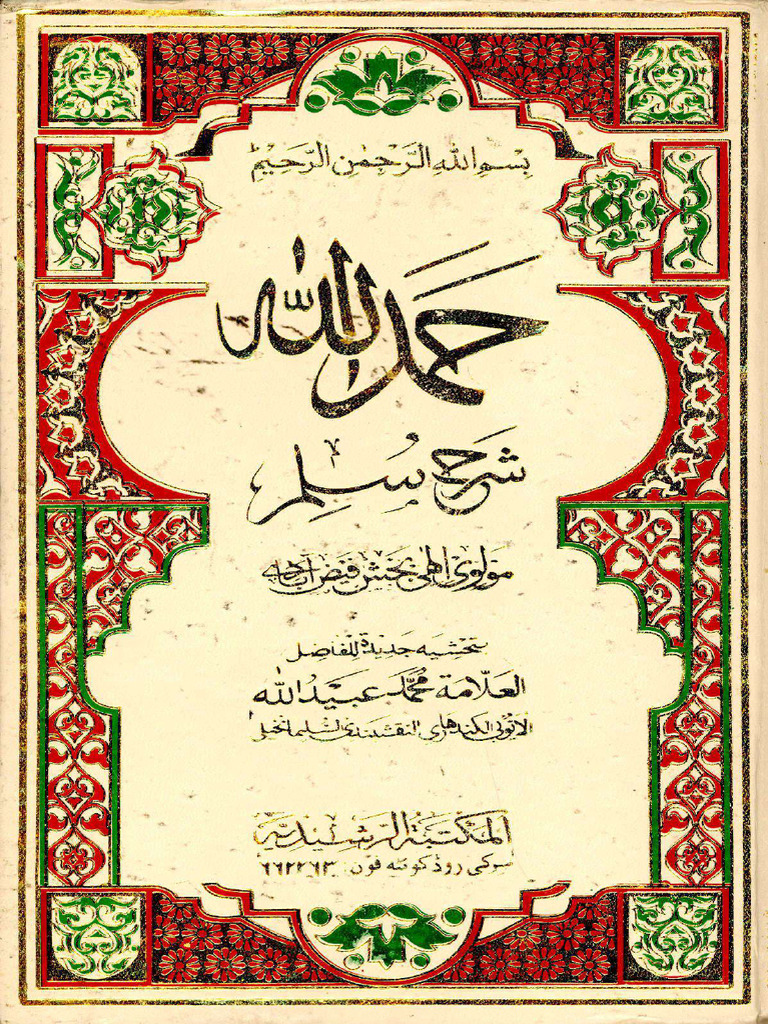 بِسْمِ اللهِ الرَّحْمٰنِ الرَّحِيْمِ
حَمْدُ الله
شرح سُلم
مولوی الٰهی بخش فیض آبادے
بتحشیه جدیدة للفاضل
العلّامة محمّد عبیدُالله
الایوبی الکندهاری النقشبندی السلیمانخیل
المکتبة الرشیدیّه
سرکی روڈ کوئٹه فون: ٦٦٢٢٦٣